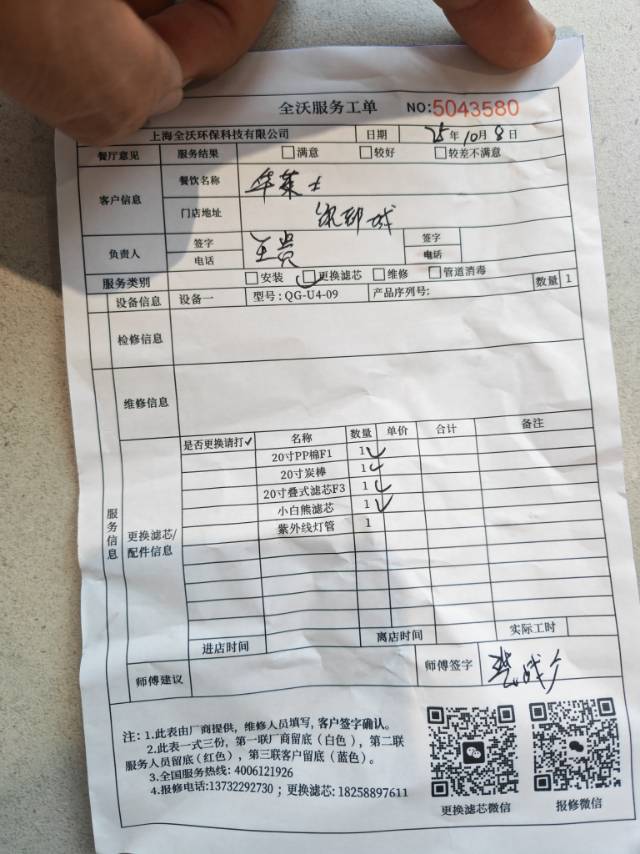 全沃服务工单 NO:5043580
上海全沃环保科技有限公司 日期 25年10月8日
餐厅意见 服务结果 □满意 □较好 □较差不满意
客户信息 餐饮名称 华莱士
门店地址
负责人 签字 王贵 签字
电话 电话
服务类别 □安装 □更换滤芯 □维修 □管道消毒
设备信息 设备一 型号:QG-U4-09 产品序列号: 数量 1
检修信息
维修信息
服务信息
更换滤芯/配件信息
是否更换请打✓ 名称 数量 单价 合计 备注
20寸PP棉F1 1 ✓
20寸炭棒 1 ✓
20寸叠式滤芯F3 1 ✓
小白熊滤芯 1 ✓
紫外线灯管 1
进店时间 离店时间 实际工时
师傅建议 师傅签字
注: 1.此表由厂商提供，维修人员填写，客户签字确认。
2.此表一式三份，第一联厂商留底（白色），第二联
服务人员留底（红色），第三联客户留底（蓝色）。
3.全国服务热线: 4006121926
4.报修电话:13732292730；更换滤芯: 18258897611
更换滤芯微信 报修微信